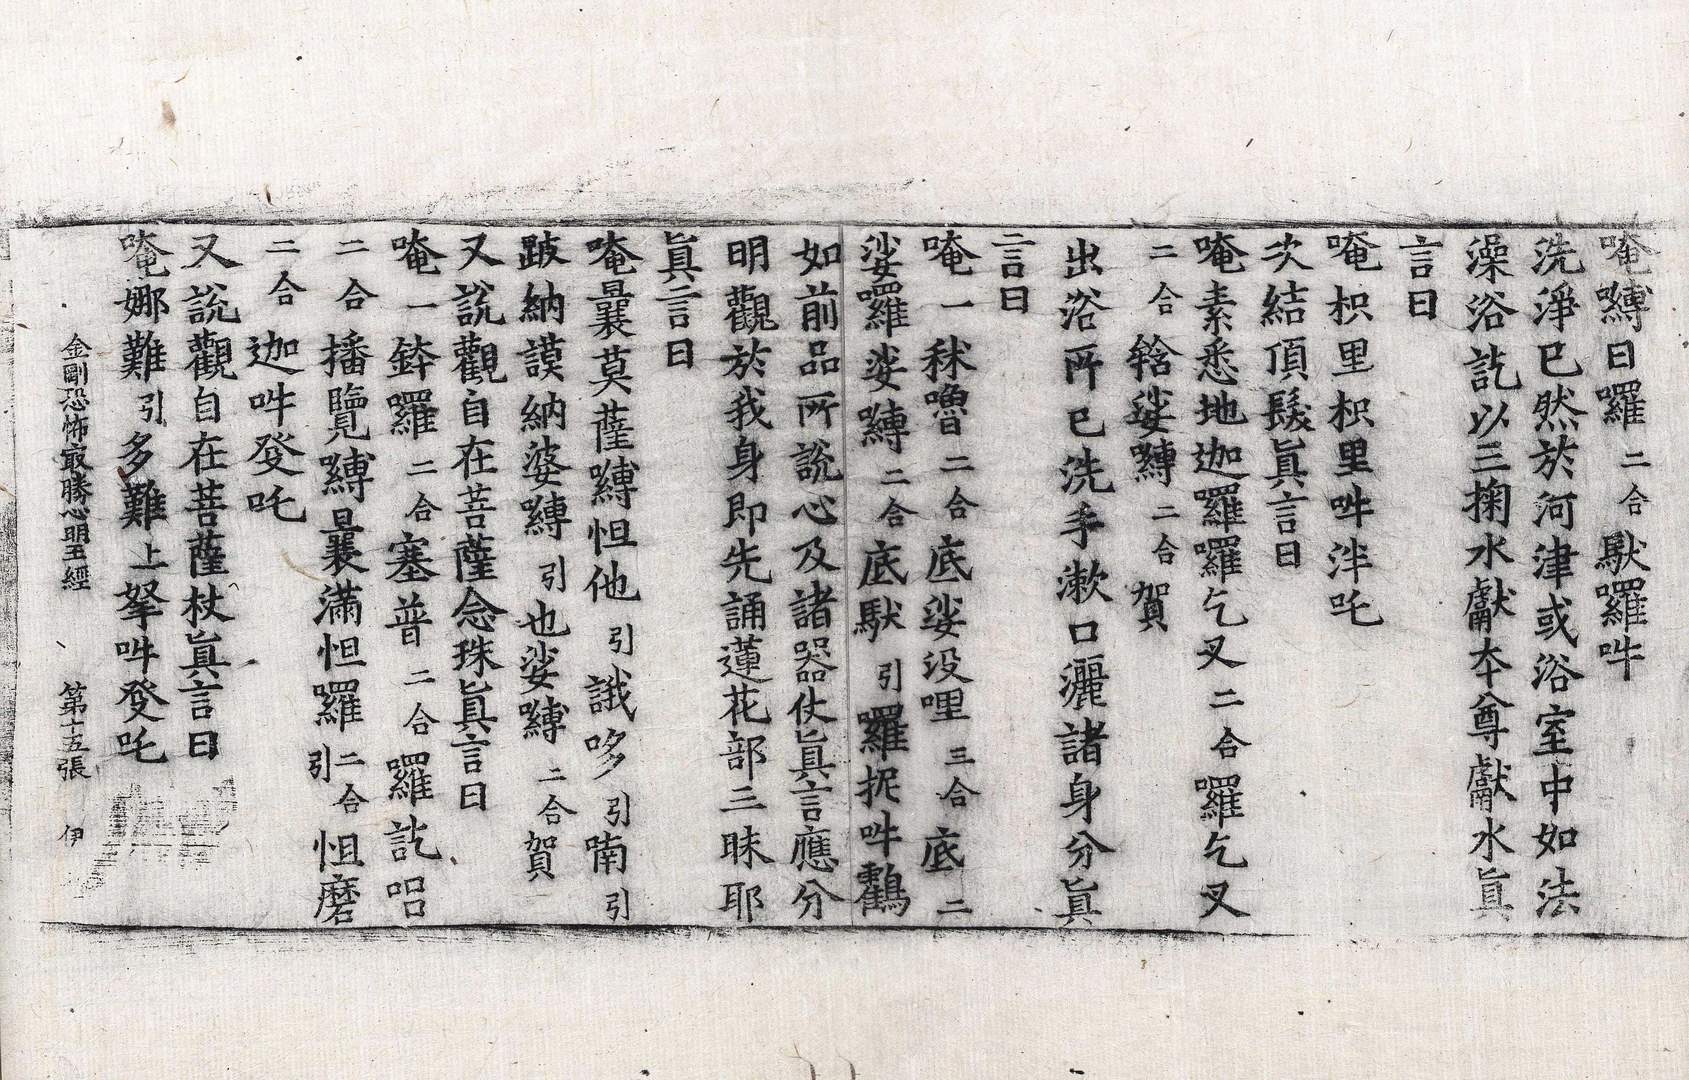 唵嚩日囉二合馱羅吽
洗淨已然於河津或浴室中如法
澡浴訖以三掬水獻本尊獻水眞
言曰
唵枳里枳里吽泮吒
次結頂髮眞言曰
唵素悉地迦囉囉乞叉二合囉乞叉
二合䤴娑嚩二合賀
出浴所已洗手漱口灑諸身分眞
言曰
唵一秫嚕二合底娑沒哩三合底二
娑囉娑嚩二合底馱引囉抳吽鸖
如前品所說心及諸器仗眞言應分
明觀於我身即先誦蓮花部三昧耶
眞言曰
唵曩莫薩嚩怛他引誐哆引喃引
跛納謨納婆嚩引也娑嚩二合賀
又說觀自在菩薩念珠眞言曰
唵一鉢囉二合塞普二合囉訖㘑
二合播覽嚩曩滿怛囉二合引怛磨
二合迦吽登吒
又說觀自在菩薩杖眞言曰
唵娜難引多難上拏吽登吒
金剛恐怖最勝心明王經 第十五張 伊